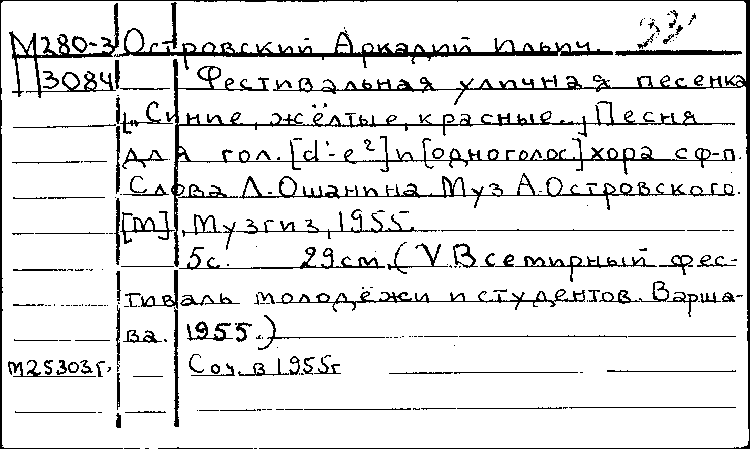 М280-3 Островский, Аркадий Ильич. 33
3084 Фестивальная уличная песенка
„Синие, жёлтые, красные..„ Песня
для гол. [d'-e²] и [одноголос.] хора с ф-п.
Слова Л. Ошанина. Муз А. Островского.
[М], Музгиз, 1955.
5с. 29см. (V Всемирный фес-
тиваль молодёжи и студентов. Варша-
ва. 1955.)
М25303г. Соч. в 1955г